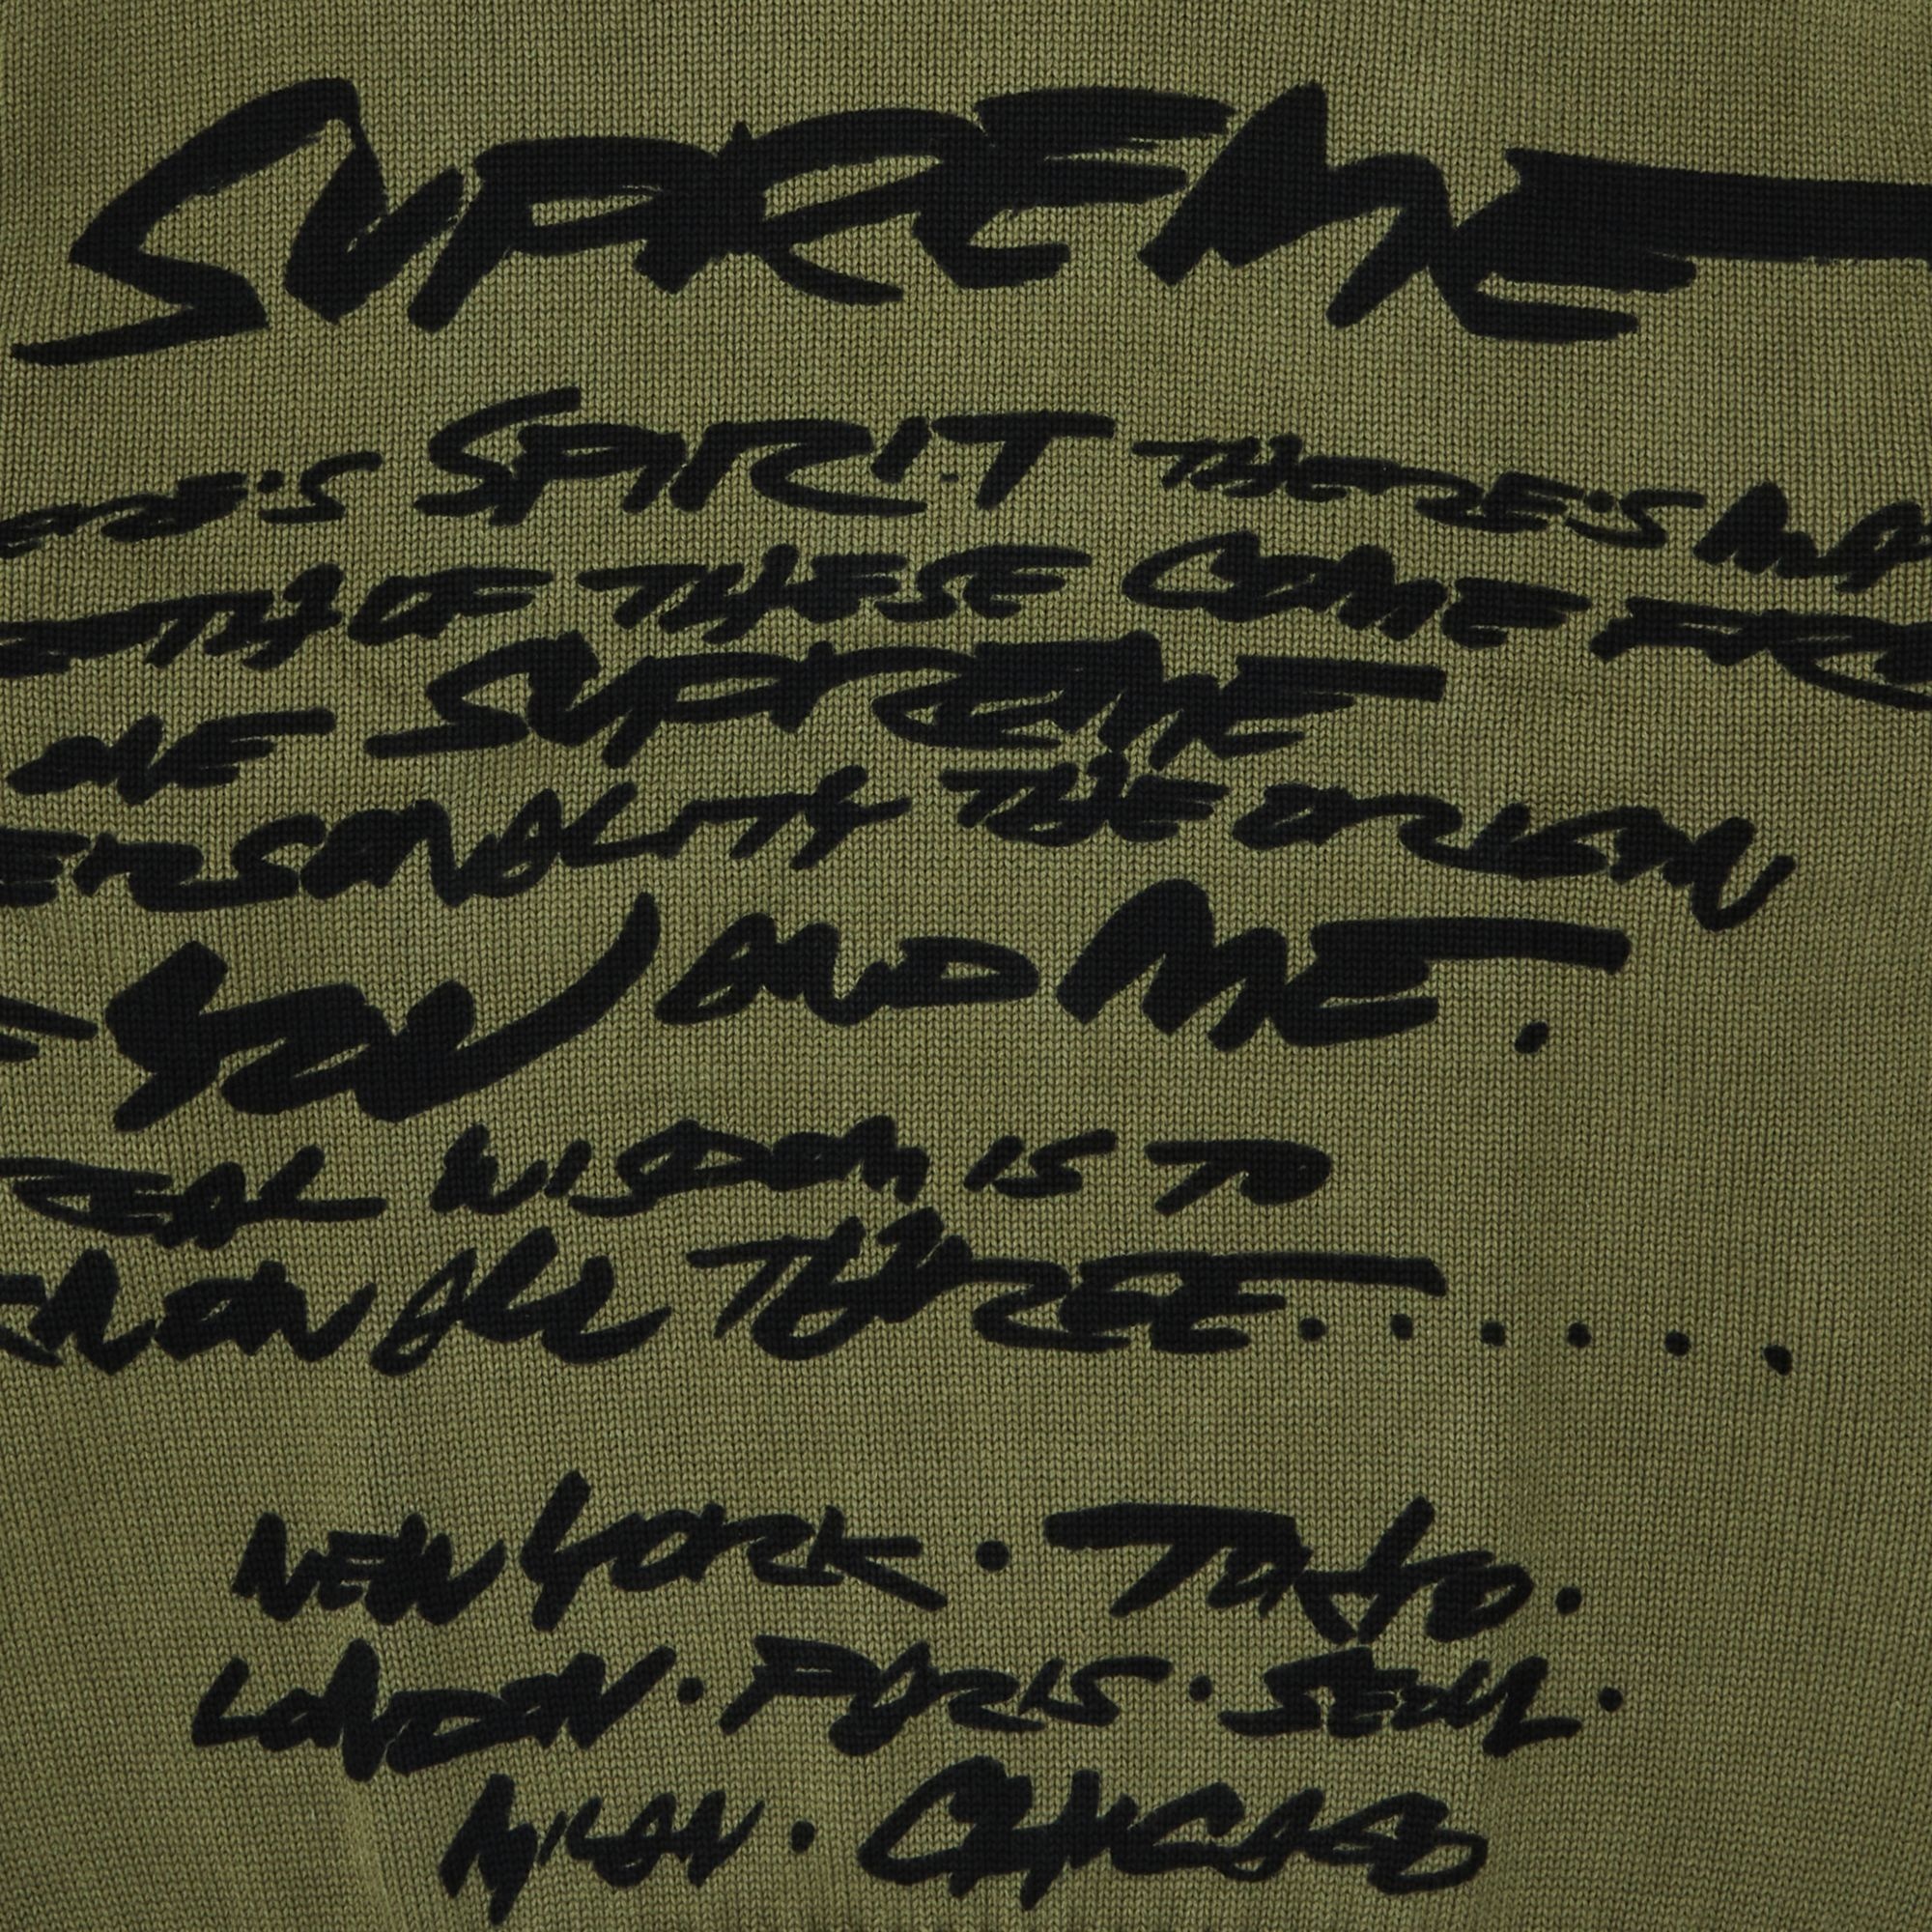 SUPREME
ERE'S SPIRIT THERE'S
OF THESE COME FRO
ONE SUPREME
ERSONALITY THE ORIGIN
YOU AND ME.
REAL WISDOM IS TO
ALL THREE......
NEW YORK · TOKYO ·
LONDON · PARIS · SEOUL ·
MILAN · CHICAGO